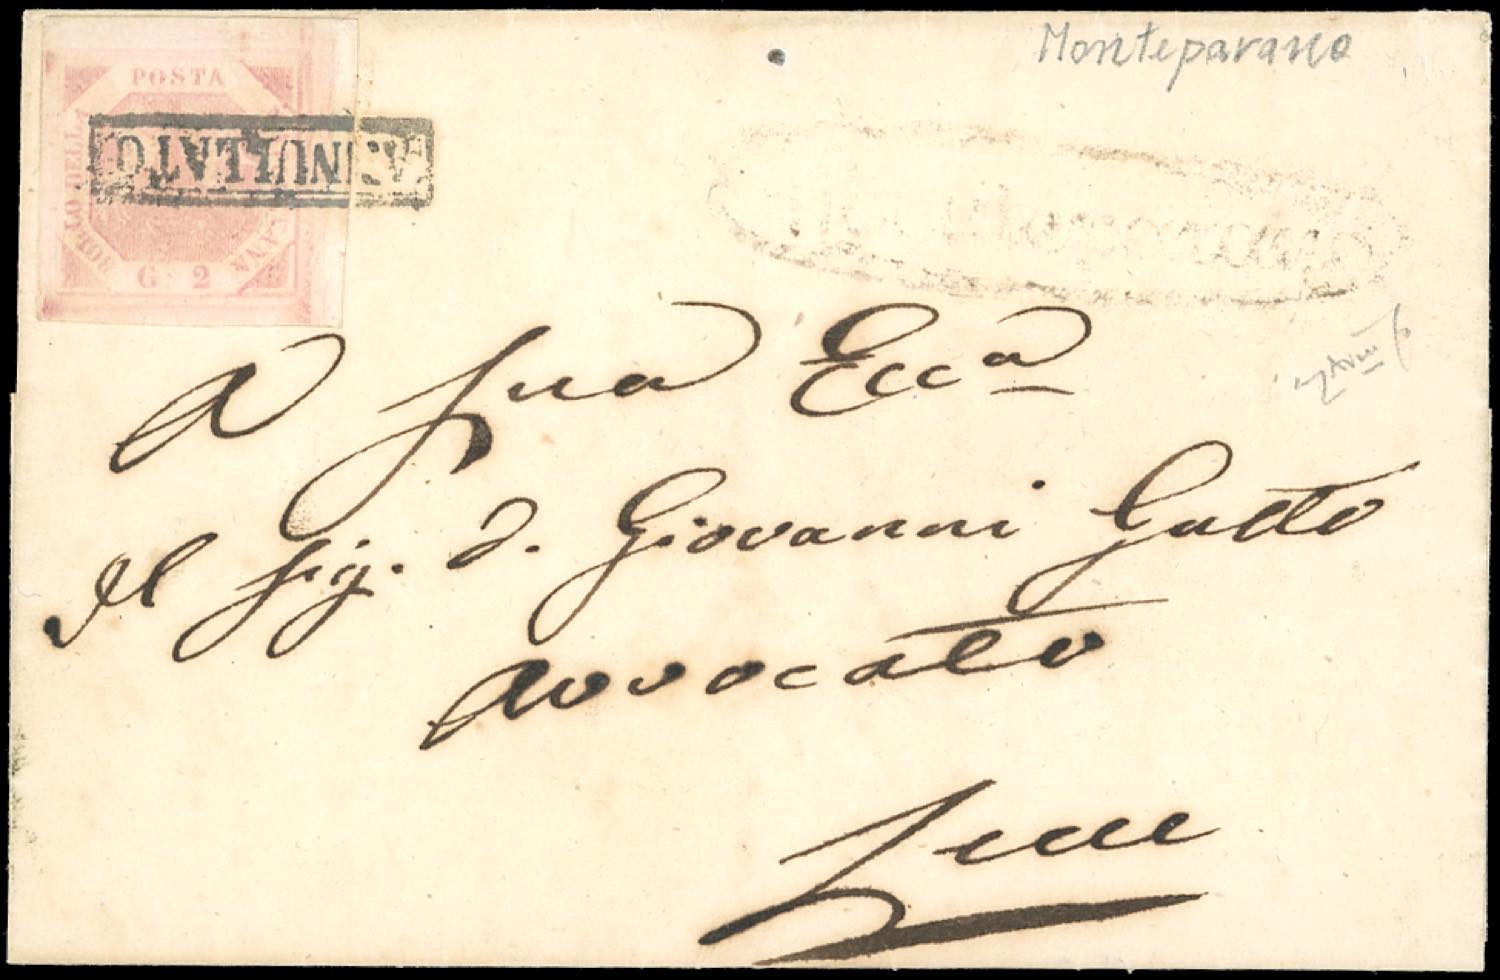 Monteparano
POSTA
BOLLO DELLA
G. 2
ANNULLATO
A Sua Ecc.a
Il Sig. D. Giovanni Gatto
Avvocato
Lecce